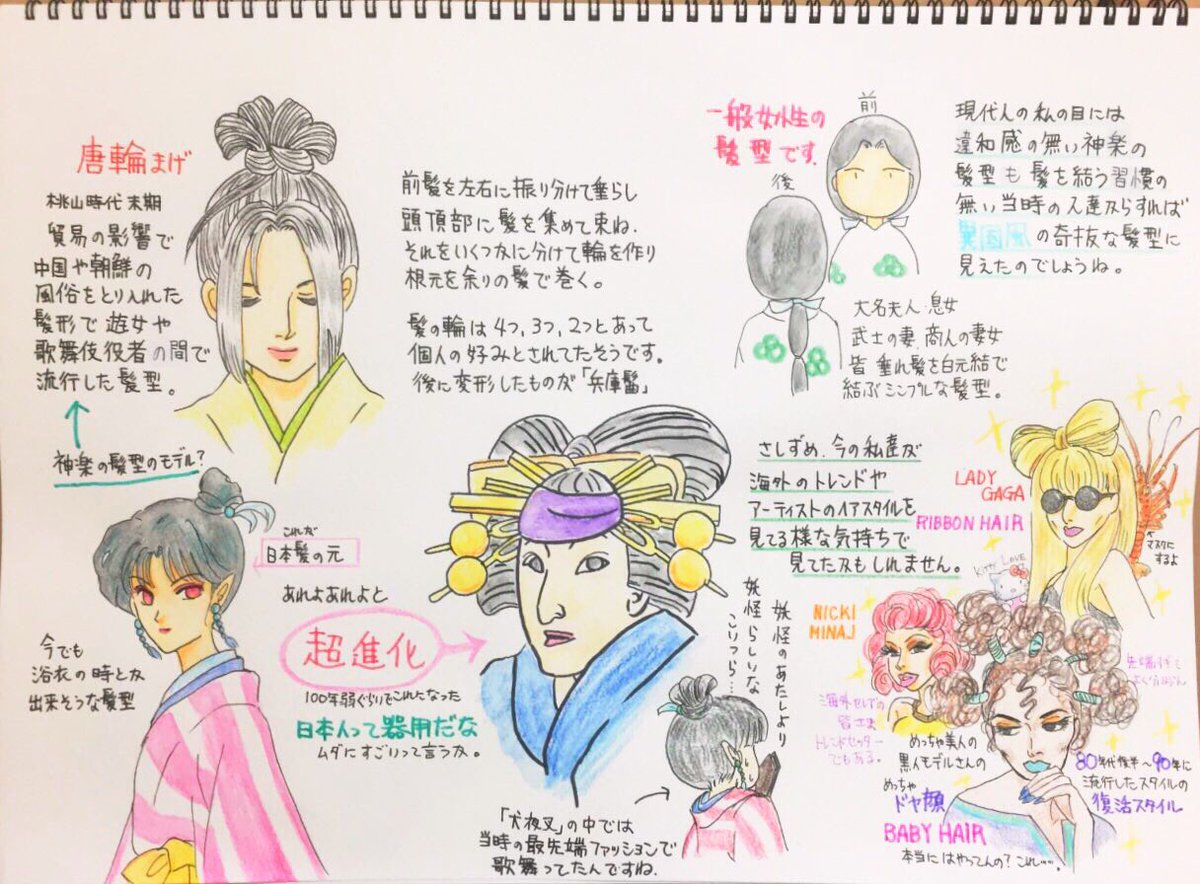 唐輪まげ
桃山時代末期
貿易の影響で
中国や朝鮮の
風俗をとり入れた
髪形で遊女や
歌舞伎役者の間で
流行した髪型。
神楽の髪型のモデル?
前髪を左右に振り分けて垂らし
頭頂部に髪を集めて束ね、
それをいくつかに分けて輪を作り
根元を余りの髪で巻く。
髪の輪は4つ,3つ,2つとあって
個人の好みとされてたそうです。
後に変形したものが「兵庫髷」
一般女性の
髪型です.
前
後
大名夫人.息女
武士の妻.商人の妻女
皆 垂れ髪を白元結で
結ぶシンプルな髪型。
現代人の私の目には
違和感の無い神楽の
髪型も髪を結う習慣の
無い当時の人達からすれば
異国風の奇抜な髪型に
見えたのでしょうね。
これが
日本髪の元
今でも
浴衣の時とか
出来そうな髪型
あれよあれよと
超進化
100年弱ぐらいでこれとなった
日本人って器用だな
ムダにすごいって言うか。
さしずめ、今の私達が
海外のトレンドや
アーティストのヘアスタイルを
見てる様な気持ちで
見てたかもしれません。
LADY
GAGA
RIBBON HAIR
マスクに
するよ
妖怪のあたしより
妖怪らしいな
こいつら…
「犬夜叉」の中では
当時の最先端ファッションで
歌舞ってたんですね.
KITTY LOVE
NICKI
MINAJ
海外セレブの
皆さま
トレンドセッター
でもある。
めっちゃ美人の
黒人モデルさんの
めっちゃ
ドヤ顔
BABY HAIR
先端すぎて
よくわからん
80年代後半~90年に
流行したスタイルの
復活スタイル
本当にはやってんの?これ…